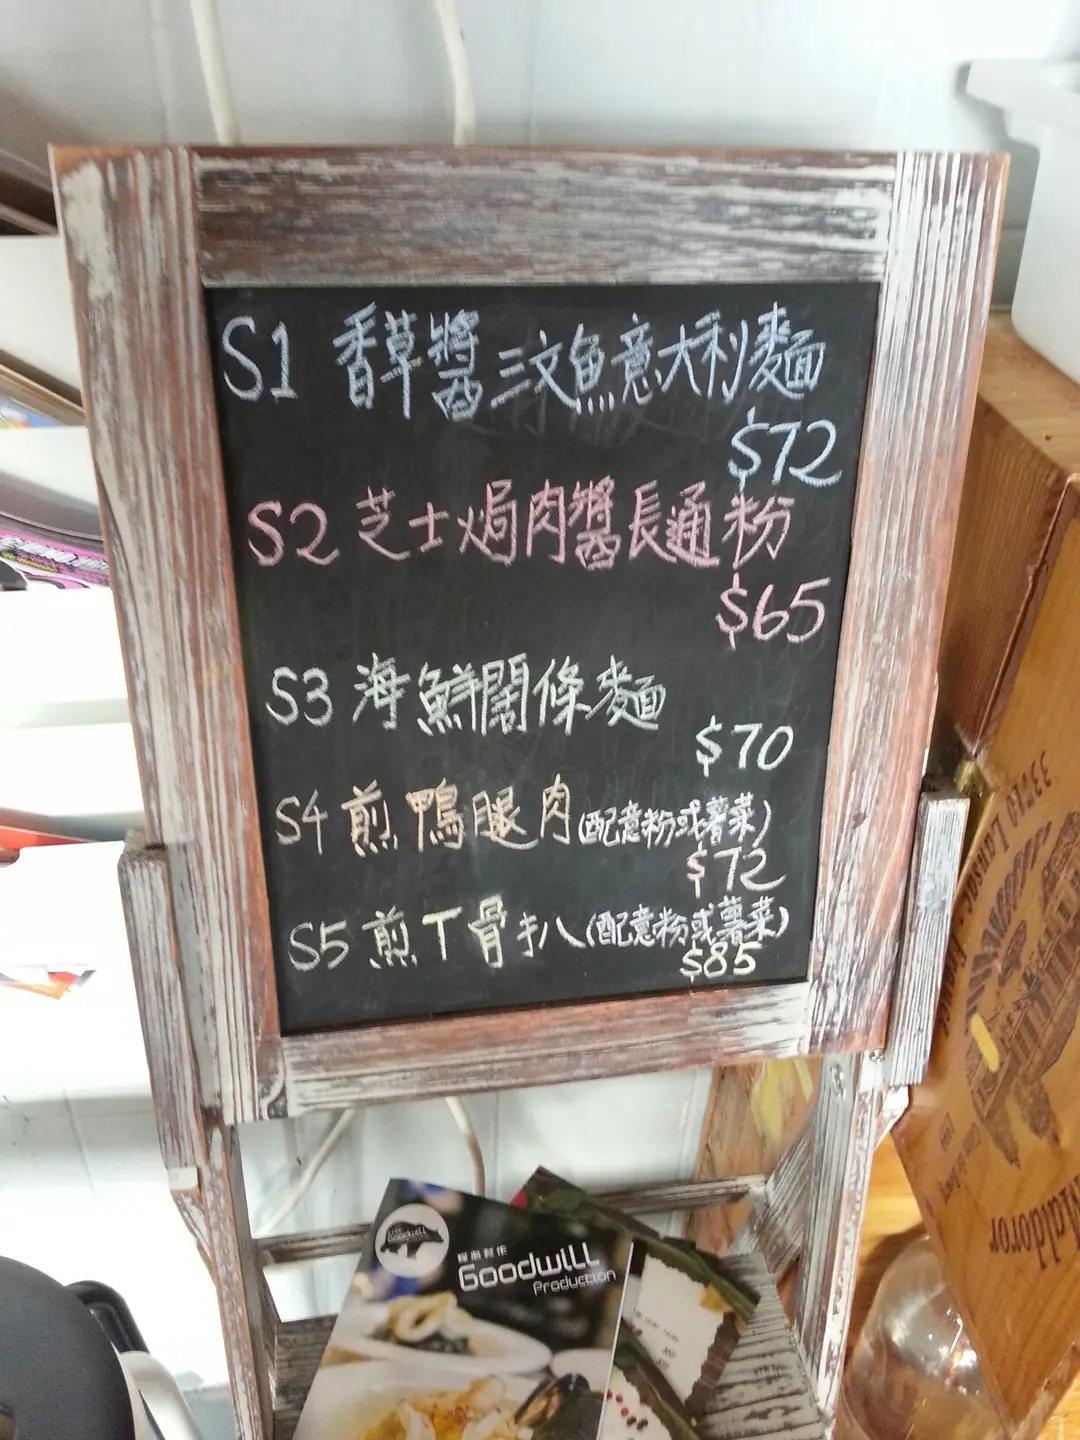 S1 香草醬三文魚意大利麵
$72
S2 芝士焗肉醬長通粉
$65
S3 海鮮闊條麵
$70
S4 煎鴨腿肉(配意粉或薯菜)
$72
S5 煎丁骨扒(配意粉或薯菜)
$85
Goodwill
Production
Maldoror